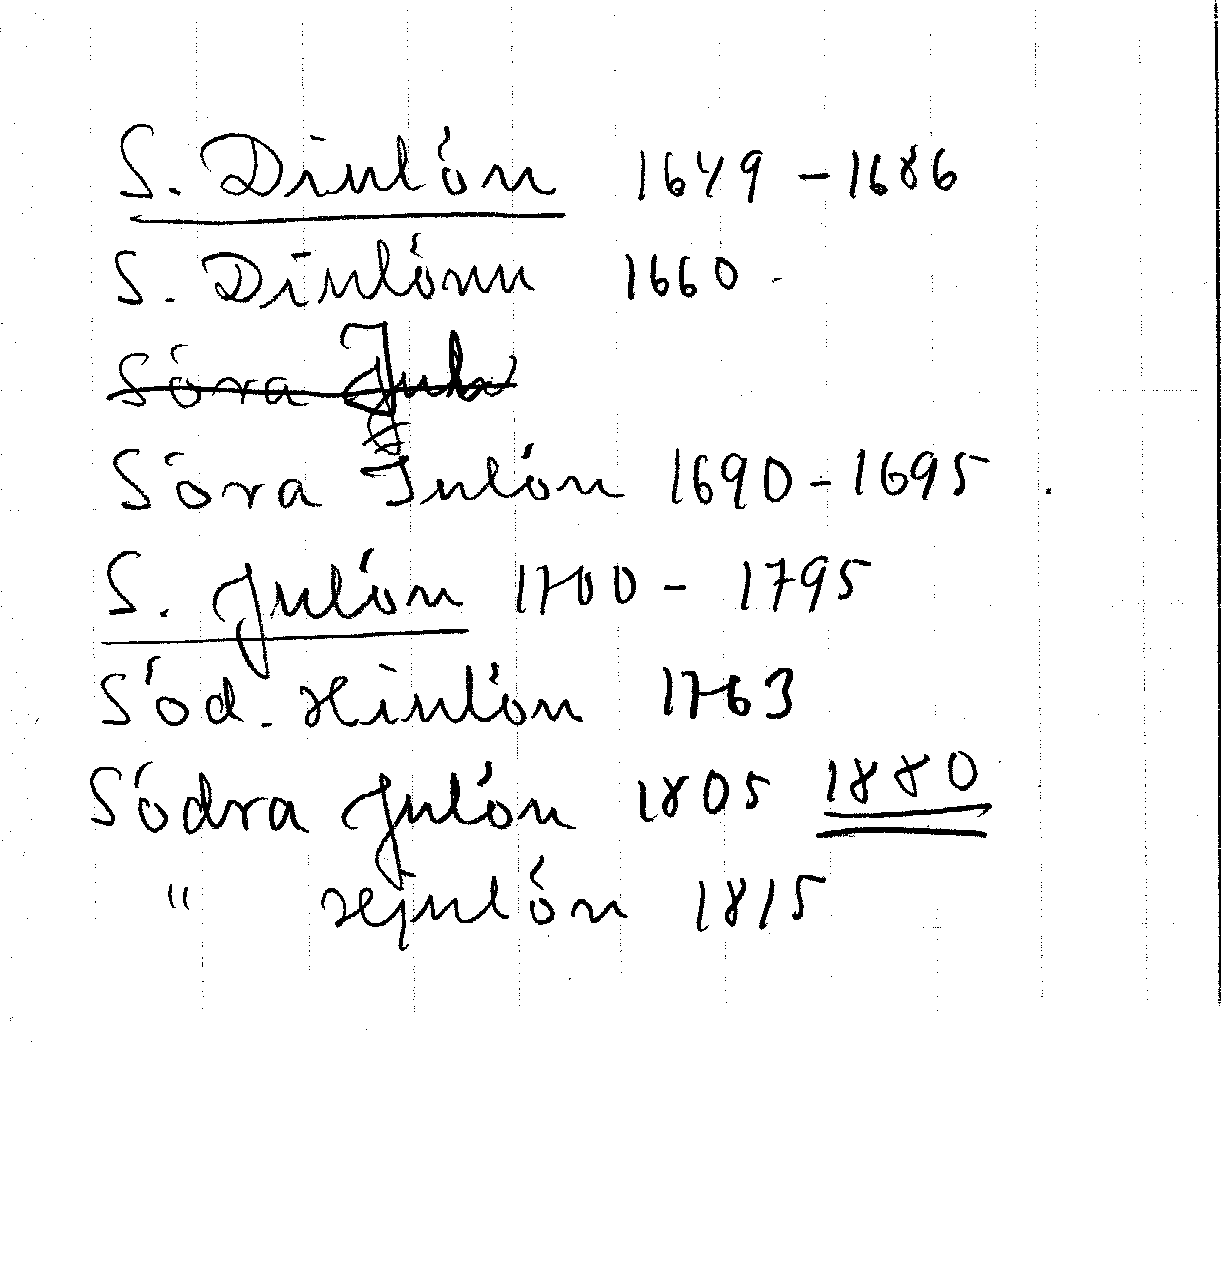 S. Diulón 1649 - 1686
S. Diulónn 1660 -
Sóra Jul
Sóra Julón 1690 - 1695
S. Julón 1700 - 1795
Söd. Hiulön 1763
Södra Julön 1805 1880
" Hjulön 1815